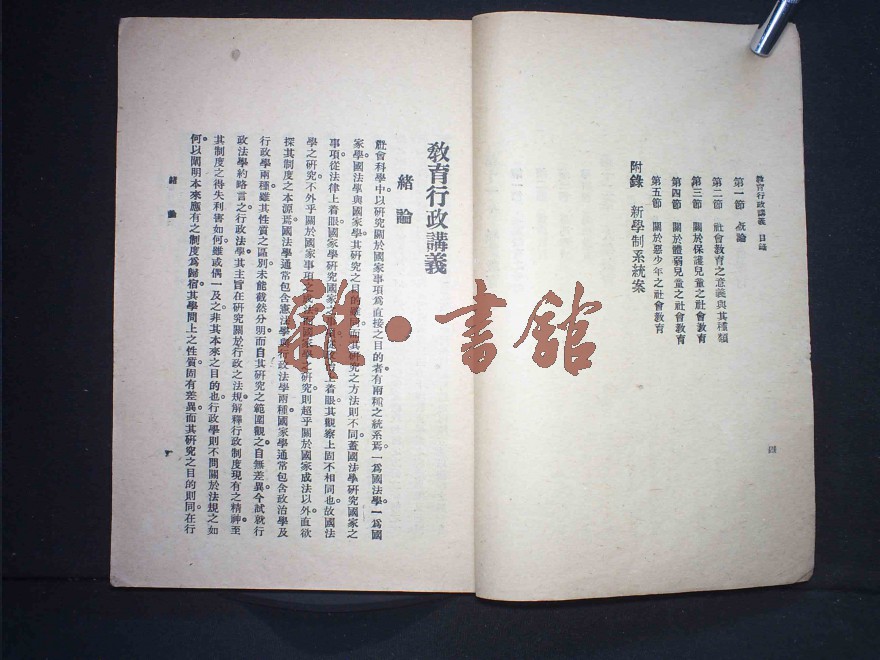 教育行政講義 目錄
第一節 概論
第二節 社會教育之意義與其種類
第三節 關於保護兒童之社會教育
第四節 關於體弱兒童之社會教育
第五節 關於惡少年之社會教育
附錄 新學制系統案
四
教育行政講義
緒論
社會科學中。以研究關於國家事項爲直接之目的者有兩種之統系焉。一爲國法學。一爲國
家學。國法學與國家學。其研究之目的雖同而其研究之方法則不同。蓋國法學研究國家之
事項。從法律上着眼。國家學研究國家之上着眼其觀察上固不相同也。故國法
學之研究。不外乎關於國家事項之成法。國家學之研究則超乎關於國家成法以外。直欲
探其制度之本源焉。國法學通常包含憲法學與行政法學兩種。國家學通常包含政治學及
行政學兩種。雖其性質之區別。未能截然分明。而自其研究之範圍觀之。自無差異。今試就行
政法學約略言之。行政法學。其主旨在研究關於行政之法規。解釋行政制度現有之精神。至
其制度之得失利害如何。雖或偶一及之。非其本來之目的也。行政學則不問關於法規之如
何。以闡明本來應有之制度爲歸宿。其學問上之性質。固有差異。而其研究之目的則同。在行
緒論
雜·書館